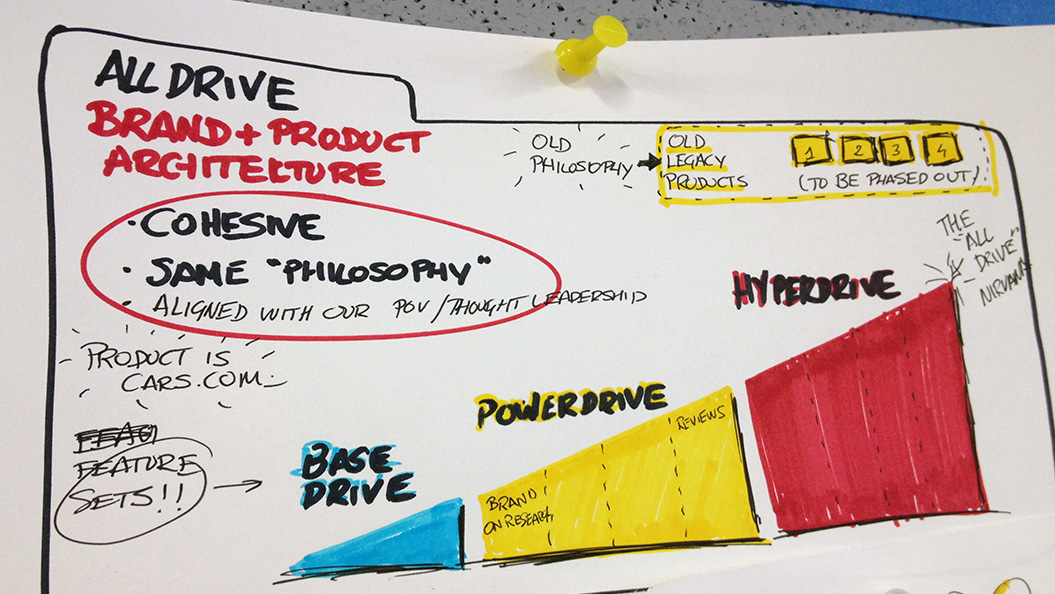 ALL DRIVE
BRAND + PRODUCT
ARCHITECTURE
• COHESIVE
• SAME "PHILOSOPHY"
• ALIGNED WITH OUR POV/THOUGHT LEADERSHIP
PRODUCT IS
CARS.COM
FEATURE
SETS!!
OLD
PHILOSOPHY
OLD
LEGACY
PRODUCTS
1 2 3 4
(TO BE PHASED OUT)
BASE
DRIVE
POWERDRIVE
BRAND
ON RESEARCH
REVIEWS
HYPERDRIVE
THE
"ALL
DRIVE"
NIRVANA